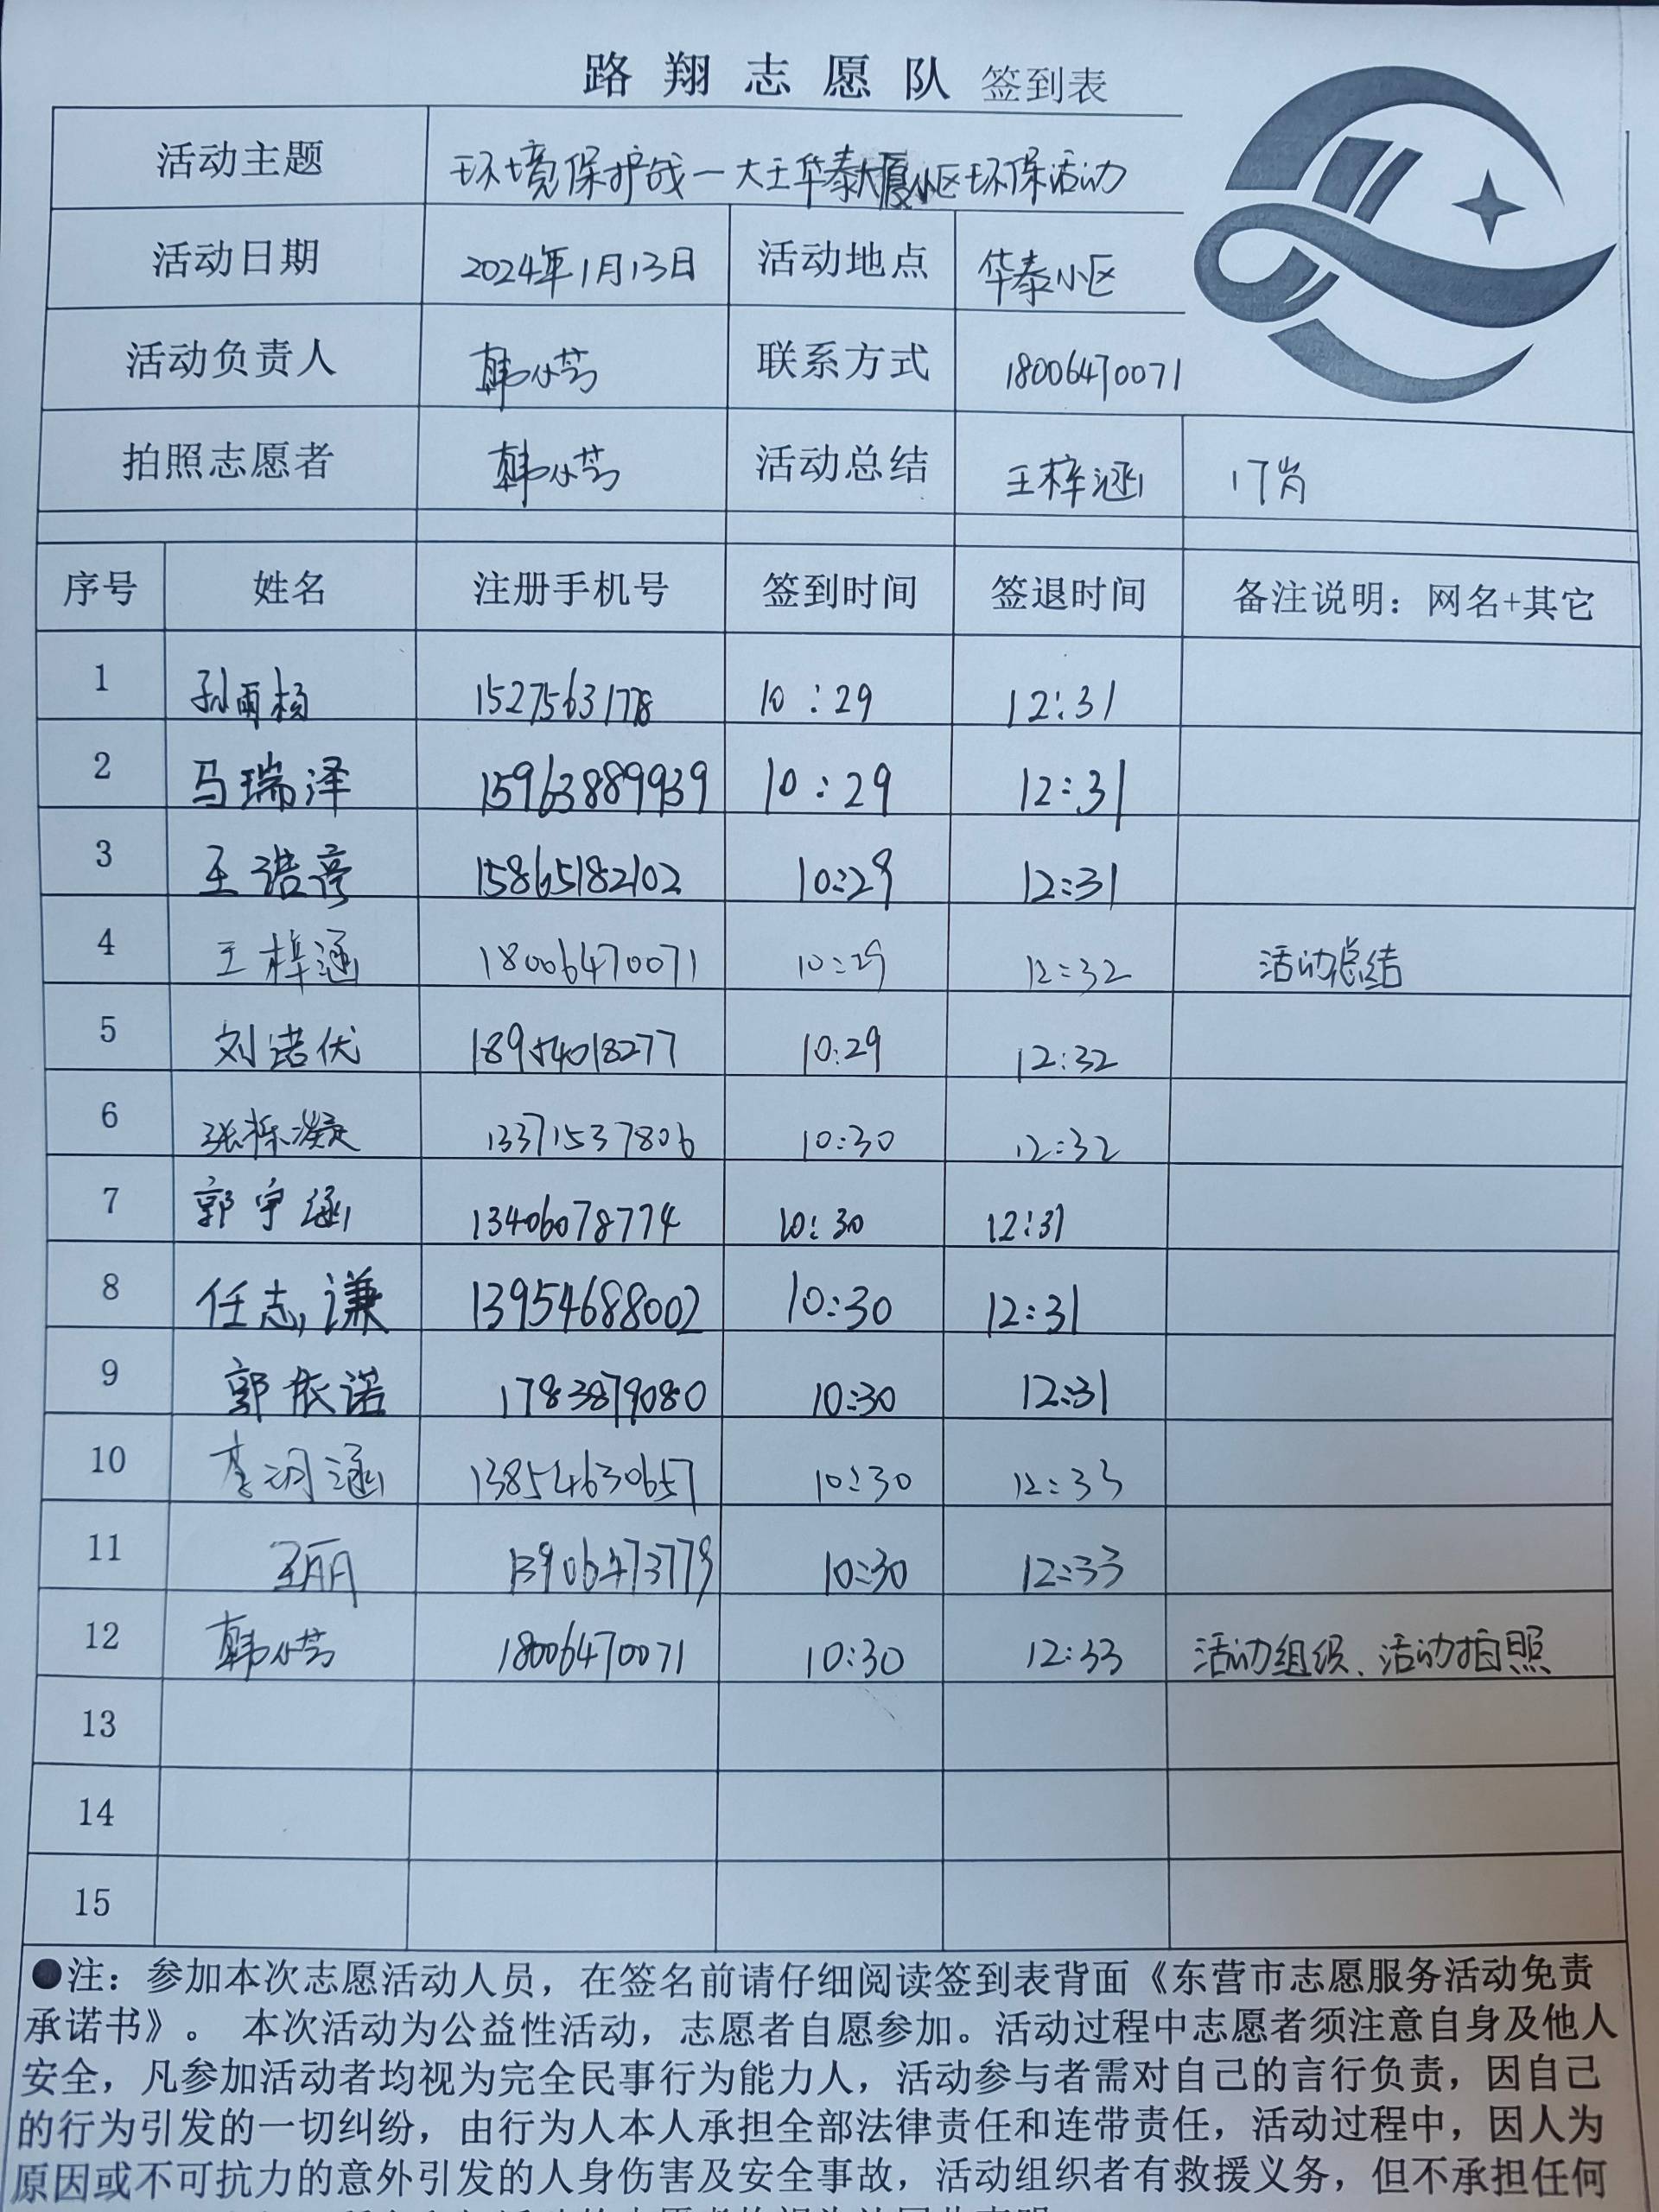 路翔志愿队 签到表
活动主题 环境保护战一大王华泰大厦小区环保活动
活动日期 2024年1月13日 活动地点 华泰小区
活动负责人 韩小芳 联系方式 18006470071
拍照志愿者 韩小芳 活动总结 王梓涵 17岁
序号 姓名 注册手机号 签到时间 签退时间 备注说明：网名+其它
1 孙雨杨 15275631778 10:29 12:31
2 马瑞泽 15963889939 10:29 12:31
3 王浩 15865182102 10:29 12:31
4 王梓涵 18006470071 10:29 12:32 活动总结
5 刘诺伏 18954018277 10:29 12:32
6 张栎凝 13371537806 10:30 12:32
7 郭宇涵 13406078774 10:30 12:31
8 任志谦 13954688002 10:30 12:31
9 郭依诺 1783879080 10:30 12:31
10 李明涵 13854630657 10:30 12:33
11 王丽 13906473779 10:30 12:33
12 韩小芳 18006470071 10:30 12:33 活动组织、活动拍照
13
14
15
●注：参加本次志愿活动人员，在签名前请仔细阅读签到表背面《东营市志愿服务活动免责
承诺书》。 本次活动为公益性活动，志愿者自愿参加。活动过程中志愿者须注意自身及他人
安全，凡参加活动者均视为完全民事行为能力人，活动参与者需对自己的言行负责，因自己
的行为引发的一切纠纷，由行为人本人承担全部法律责任和连带责任，活动过程中，因人为
原因或不可抗力的意外引发的人身伤害及安全事故，活动组织者有救援义务，但不承担任何